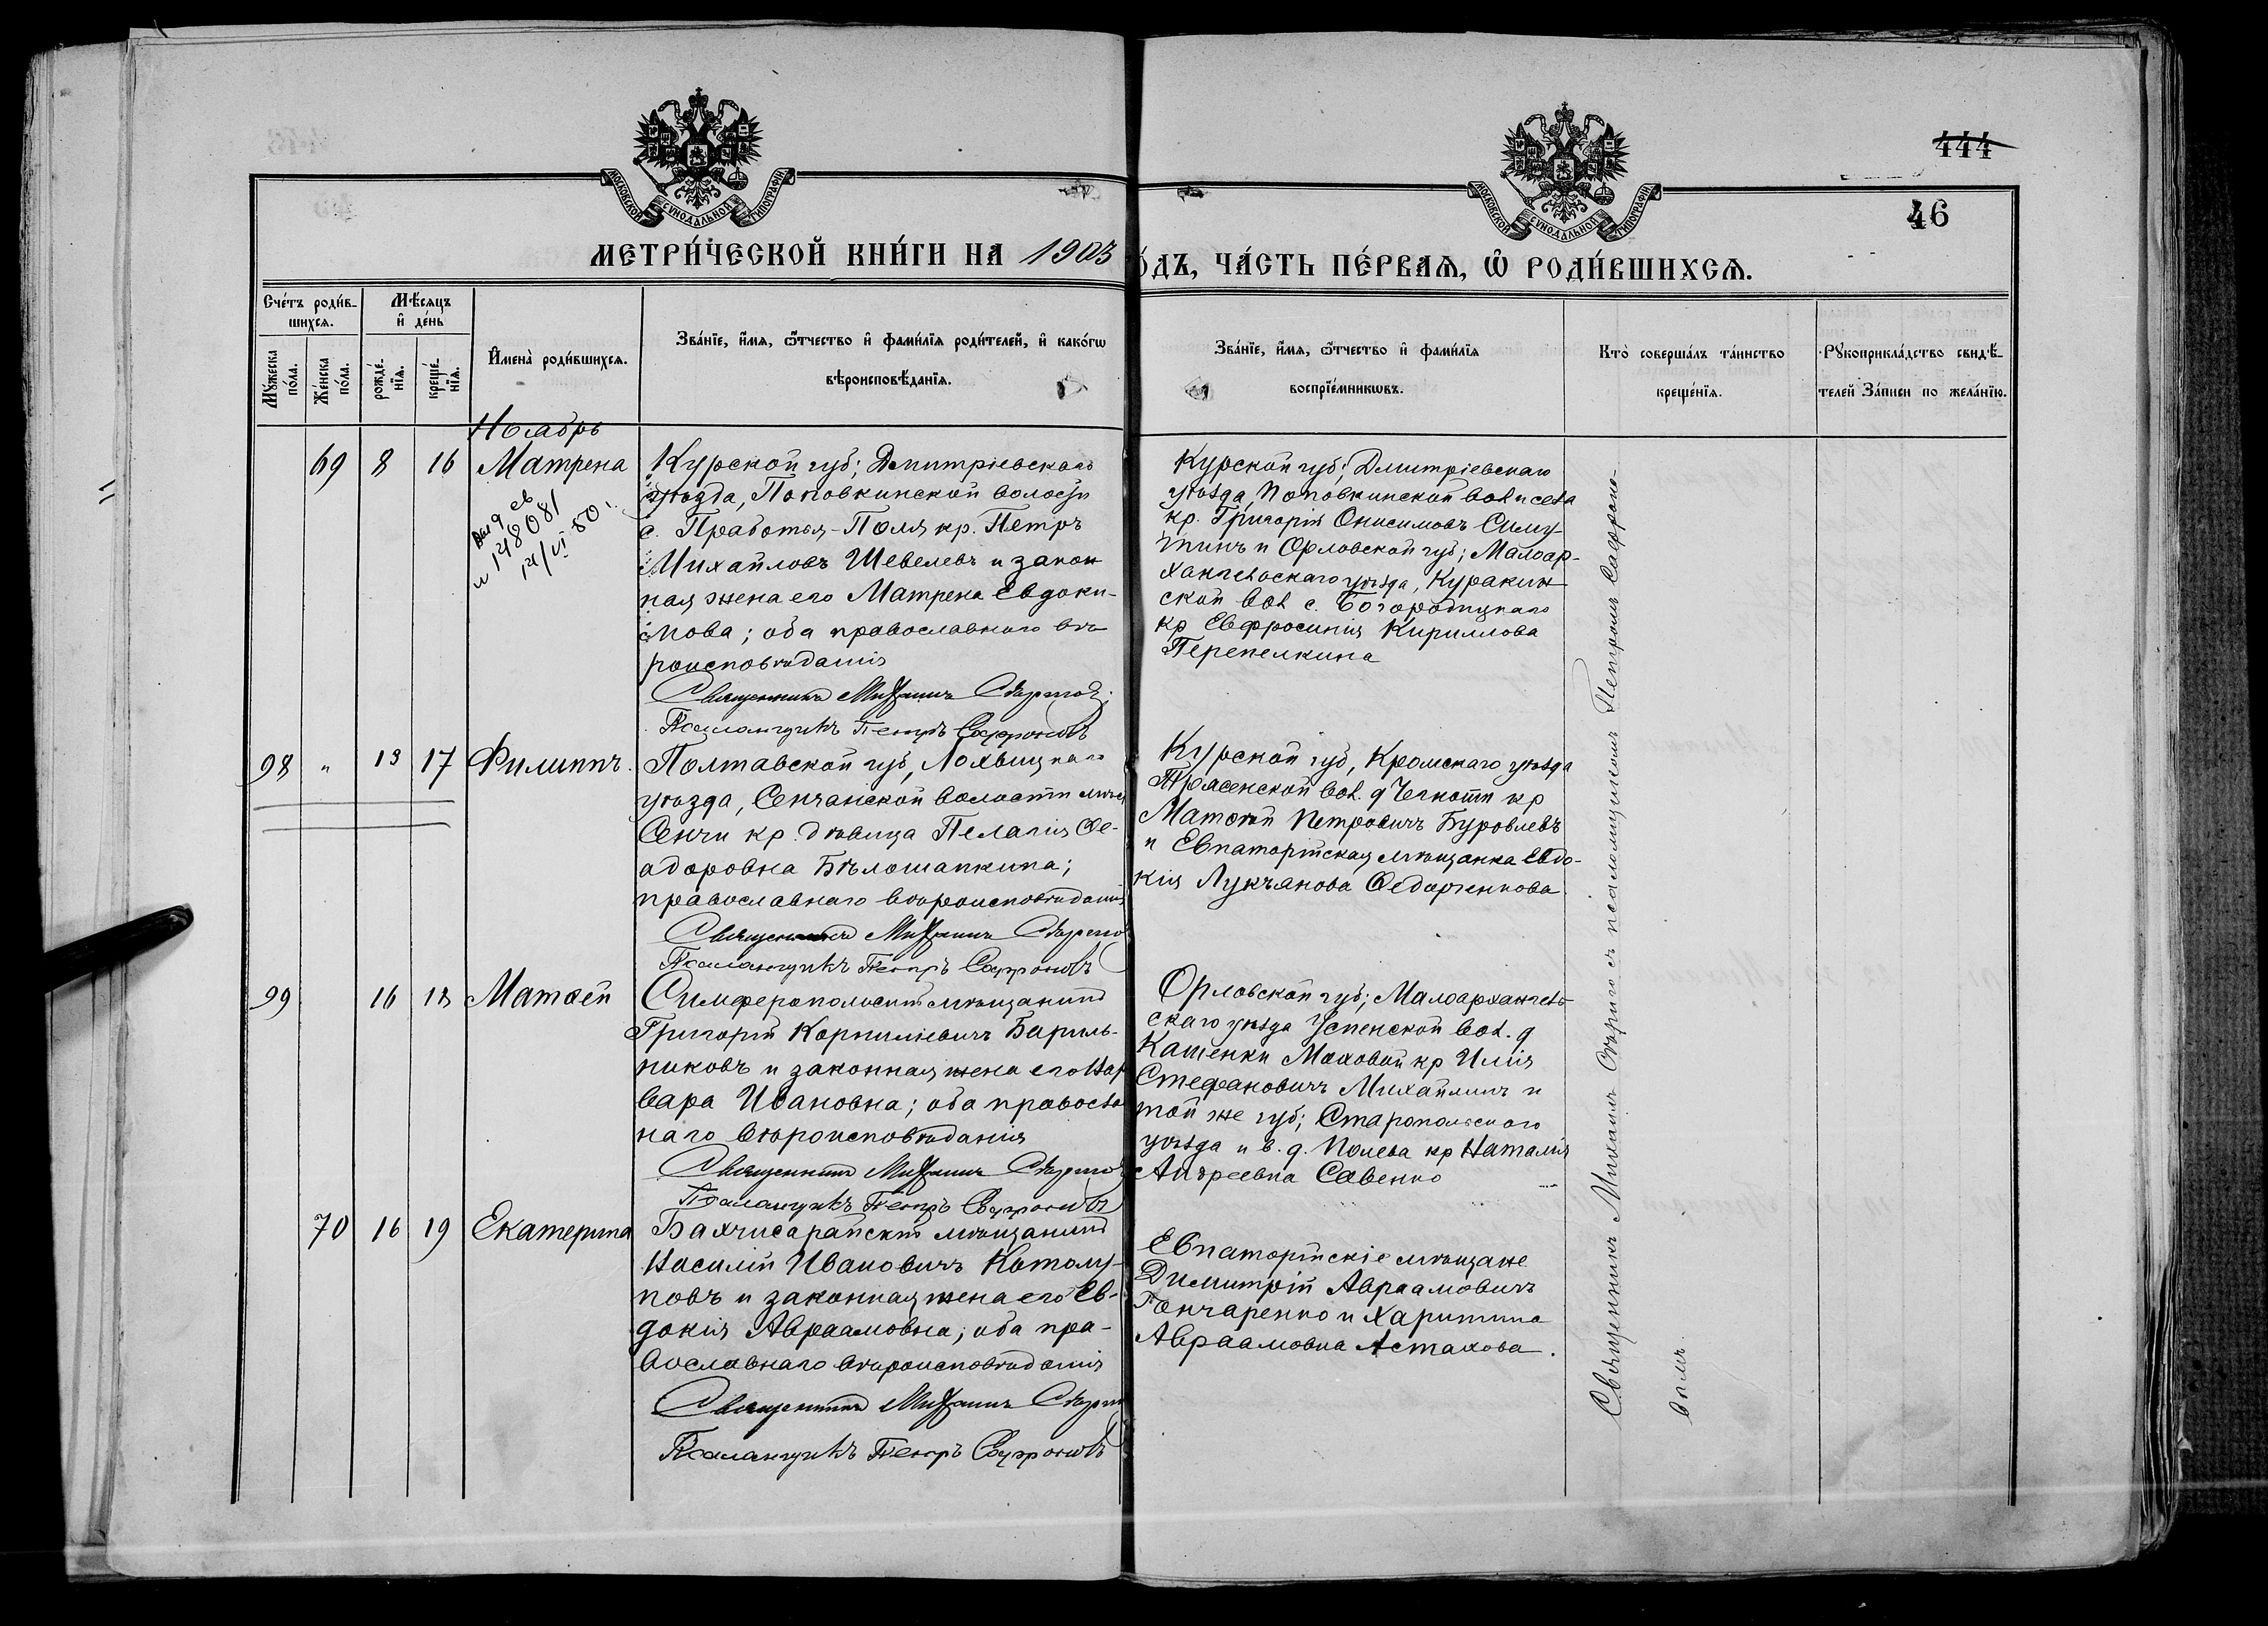 444
46
МОСКОВСКОЙ СѴНОДАЛЬНОЙ ТИПОГРАФІИ
МОСКОВСКОЙ СѴНОДАЛЬНОЙ ТИПОГРАФІИ
МЕТРИ́ЧЕСКОЙ КНИ́ГИ НА 1903
О́ДЪ, ЧА́СТЬ ПЕ́РВАѦ, Ѡ РОДИ́ВШИХСѦ.
Сче́тъ роди́в-
шихсѧ.
Мѣ́сѧцъ
и҆ де́нь
Мꙋ́жеска по́ла.
Же́нска по́ла.
рожде́-
нїѧ.
креще́-
нїѧ.
И҆мена̀ роди́вшихсѧ.
Зва́нїе, и҆́мѧ, ѻ҆́тчество и҆ фами́лїѧ роди́телей, и҆ како́гѡ
вѣроисповѣ́данїѧ.
Зва́нїе, и҆́мѧ, ѻ҆́тчество и҆ фами́лїѧ
воспрїе́мникѡвъ.
Кто̀ соверша́лъ та́инство
креще́нїѧ.
Рꙋкоприкла́дство свидѣ́-
телей за́писи по жела́нїю.
Ноябрь
69 8 16 Матрена
148081
14/VI-50
Курской губ; Дмитріевскаго
уѣзда, Поповкинской волости
с. Працотья-Поля кр. Петръ
Михайловъ Шевелевъ и закон
ная жена его Матрена Евдоки-
мова; оба православнаго вѣ
роисповѣданія
Священникъ Михаилъ
Псаломщикъ Петръ Сафроновъ
Курской губ; Дмитріевскаго
уѣзда, Поповкинской вол и села
кр. Григорій Онисимовъ Симу-
тинъ и Орловской губ; Малоар-
хангельскаго уѣзда, Куракин
ской вол с. Богородицкаго
кр Евфросинія Кириллова
Перепелкина
98 " 13 17 Филиппъ.
Полтавской губ, Лохвицкаго
уѣзда, Сенчанской волости мѣст
Сенчи кр. дѣвица Пелагія Ѳе-
одоровна Бѣлошапкина;
православнаго вѣроисповѣданія
Священникъ Михаилъ
Псаломщикъ Петръ Сафроновъ
Курской губ, Кромскаго уѣзда
вол. д Черноти кр
Матѳей Петровичъ Буровлевъ
и Евпаторійская мѣщанка Евдо-
кія Лукьянова Ѳедорченкова
99 16 18 Матѳей
Симферопольскій мѣщанинъ
Григорій Корниліевичъ Бариль-
никовъ и законная жена его Вар
вара Ивановна; оба правосла
наго вѣроисповѣданія
Священникъ Михаилъ
Псаломщикъ Петръ Сафроновъ
Орловской губ; Малоархангель-
скаго уѣзда Успенской вол. д
Каменки Маховой кр Илія
Стефановичъ Михайлинъ и
той же губ; Старопольскаго
уѣзда и в. д. Полева кр Наталія
Андреевна Савенко
70 16 19 Екатерина
Бахчисарайскій мѣщанинъ
Василій Ивановичъ Католу-
повъ и законная жена его Ев-
докія Авраамовна; оба пра-
вославнаго вѣроисповѣданія
Священникъ Михаилъ
Псаломщикъ Петръ Сафроновъ
Евпаторійскіе мѣщане
Димитрій Авраамовичъ
Гончаренко и Харитина
Авраамовна Астахова.
Священникъ Михаилъ съ псаломщикомъ Петромъ Сафроно-
вымъ